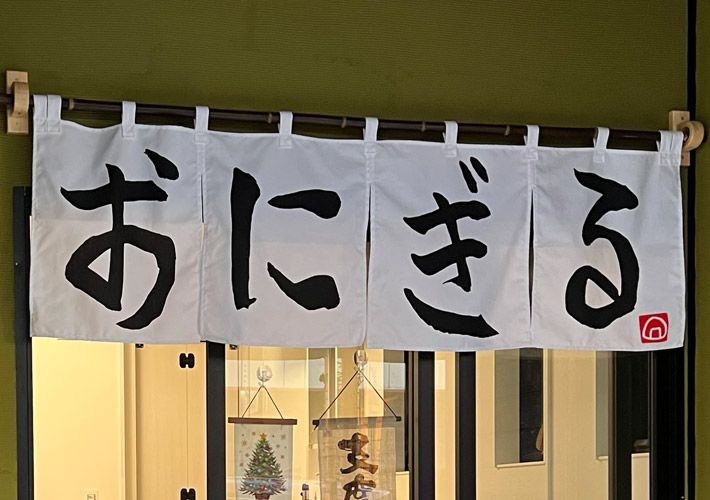 おにぎる